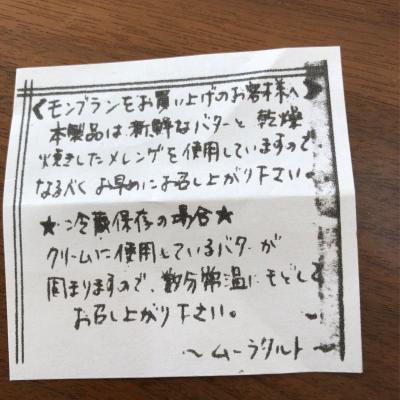 《モンブランをお買い上げのお客様へ》
本製品は新鮮なバターと乾燥
焼きしたメレンゲを使用していますので
なるべくお早めにお召し上がり下さい。
★冷蔵保存の場合★
クリームに使用しているバターが
固まりますので、数分常温にもどして
お召し上がり下さい。
〜ムーラタルト〜